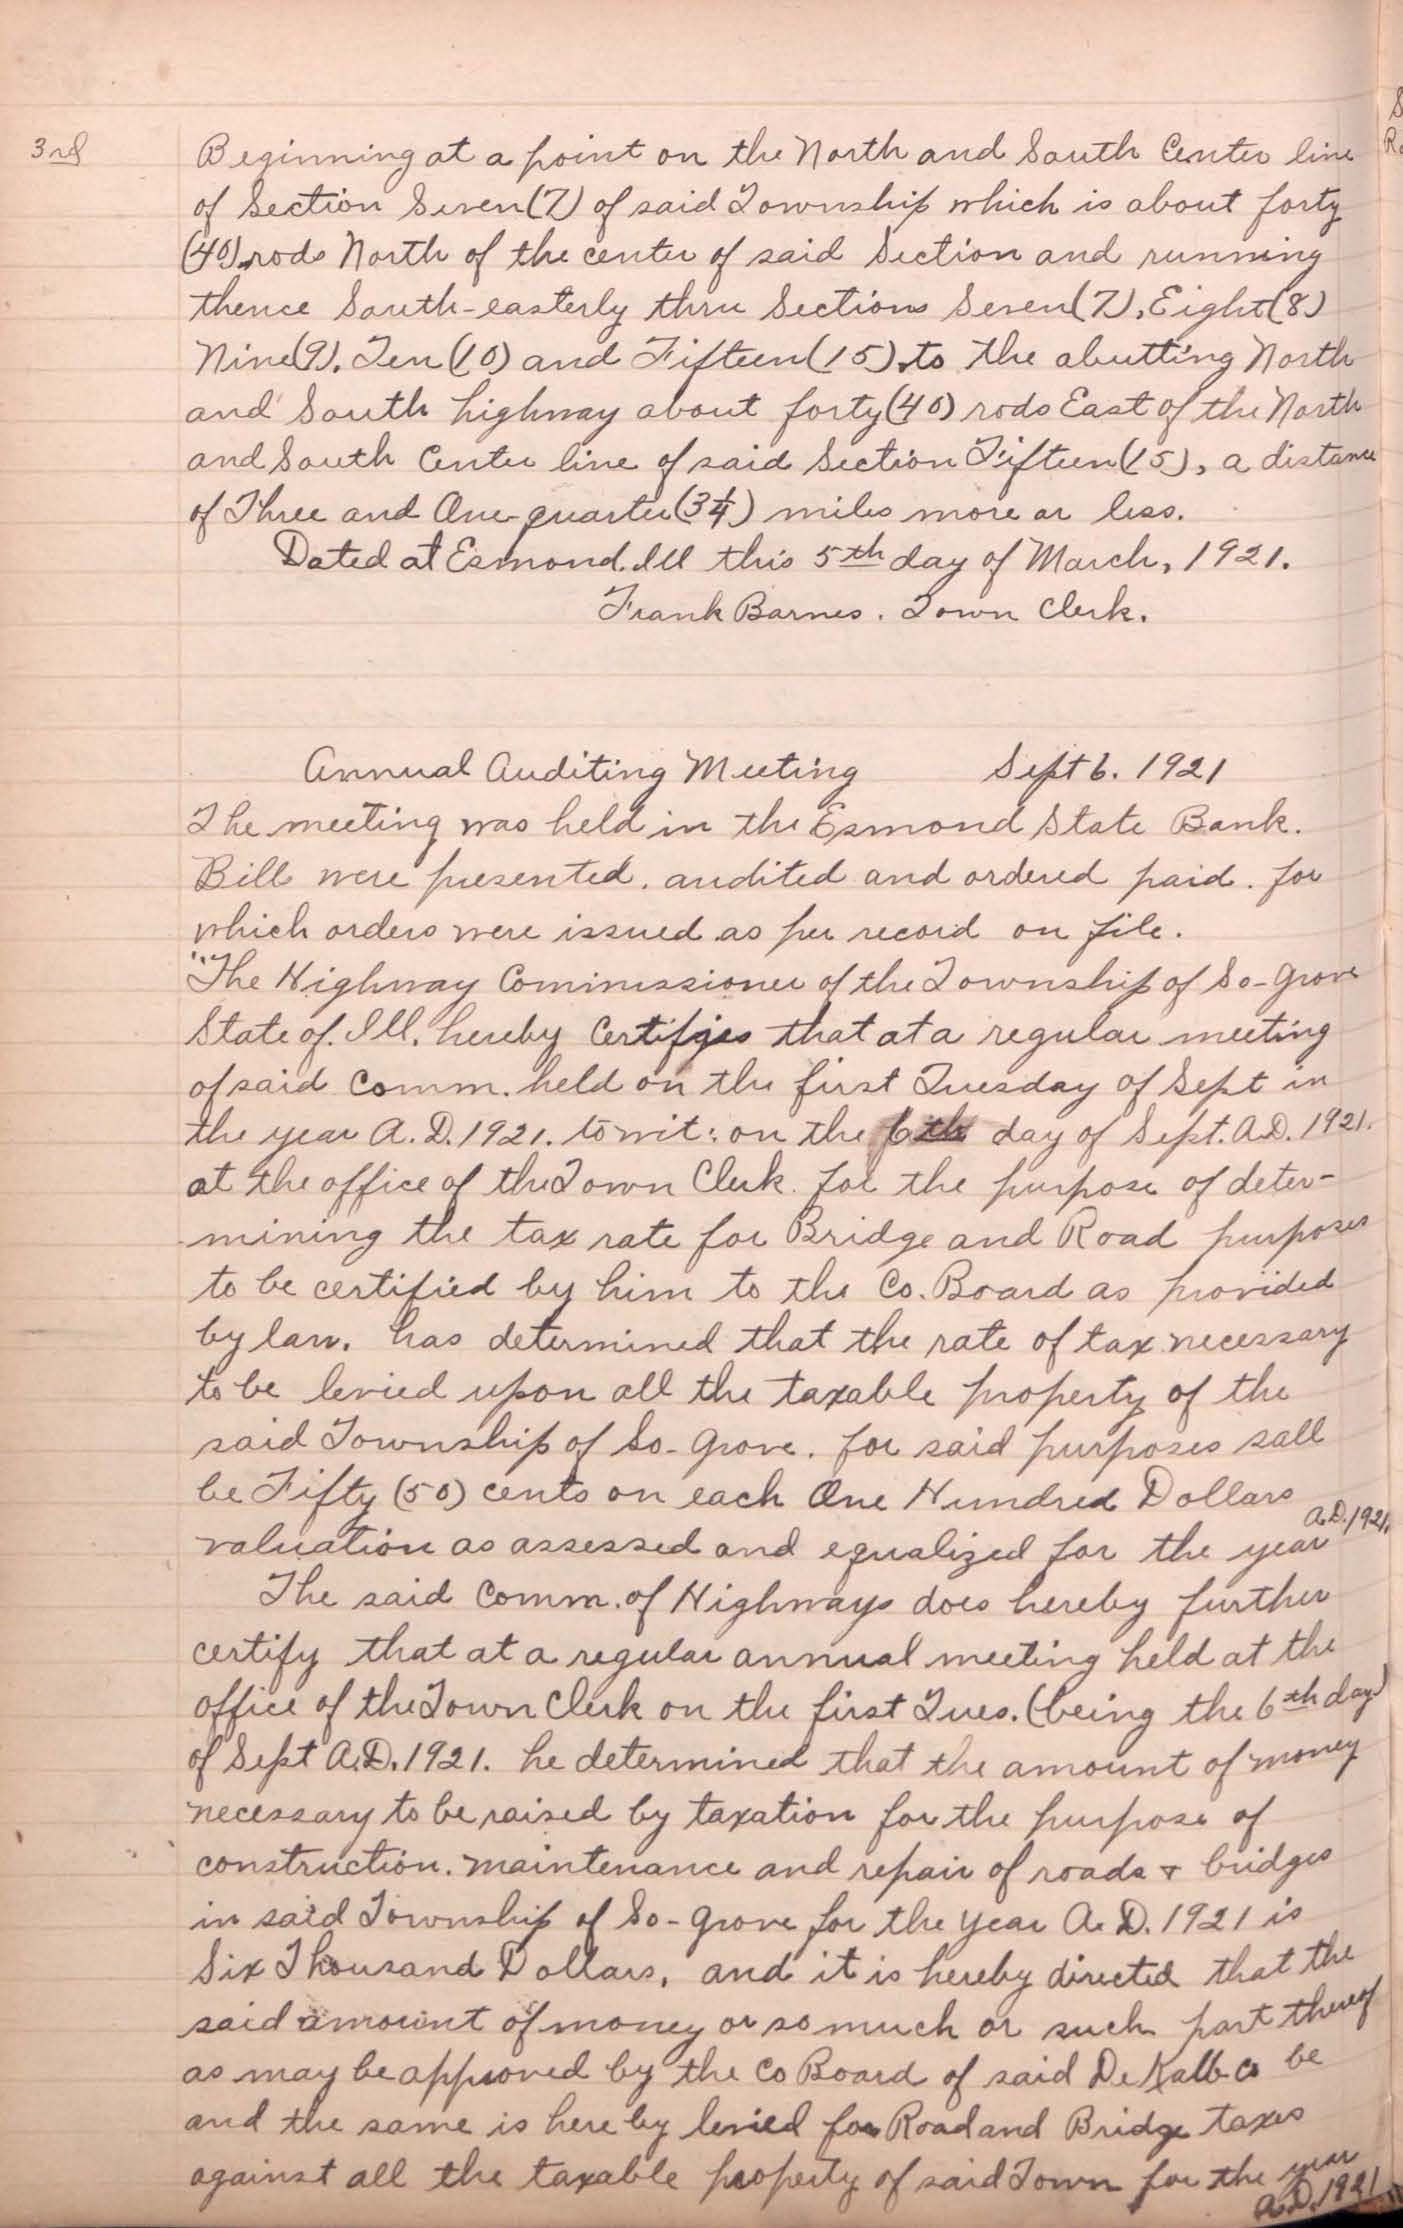 3rd
Beginning at a point on the North and South Center line
of Section Seven(7) of said Township which is about forty
(40) rods North of the center of said Section and running
thence South-easterly thru Sections Seven(7), Eight(8)
Nine(9), Ten(10) and Fifteen(15), to the abutting North
and South highway about forty(40) rods East of the North
and South Center line of said Section Fifteen(15), a distance
of Three and One-quarter(3 1/4) miles more or less.
Dated at Esmond. Ill this 5th day of March, 1921.
Frank Barnes. Town Clerk.
Annual Auditing Meeting Sept 6. 1921
The meeting was held in the Esmond State Bank.
Bill were presented. audited and ordered paid. for
which orders were issued as per record on file.
"The Highway Commissioner of the Township of So-Grove
State of. Ill. hereby Certifies that at a regular meeting
of said Comm. held on the first Tuesday of Sept in
the year A.D. 1921. to wit: on the 6th day of Sept. A.D. 1921.
at the office of the Town Clerk. for the purpose of deter-
mining the tax rate for Bridge and Road purposes
to be certified by him to the Co. Board as provided
by law. has determined that the rate of tax necessary
to be levied upon all the taxable property of the
said Township of So-Grove. for said purposes sall
be Fifty (50) cents on each One Hundred Dollars
valuation as assessed and equalized for the year A.D. 1921.
The said Comm. of Highways does hereby further
certify that at a regular annual meeting held at the
office of the Town Clerk on the first Tues. (being the 6th day)
of Sept A.D. 1921. he determined that the amount of money
necessary to be raised by taxation for the purpose of
construction. maintenance and repair of roads & bridges
in said Township of So-Grove for the year A.D. 1921 is
Six Thousand Dollars, and it is hereby directed that the
said amount of money or so much or such part thereof
as may be approved by the Co Board of said DeKalb Co be
and the same is hereby levied for Road and Bridge taxes
against all the taxable property of said Town for the year
A.D. 1921.